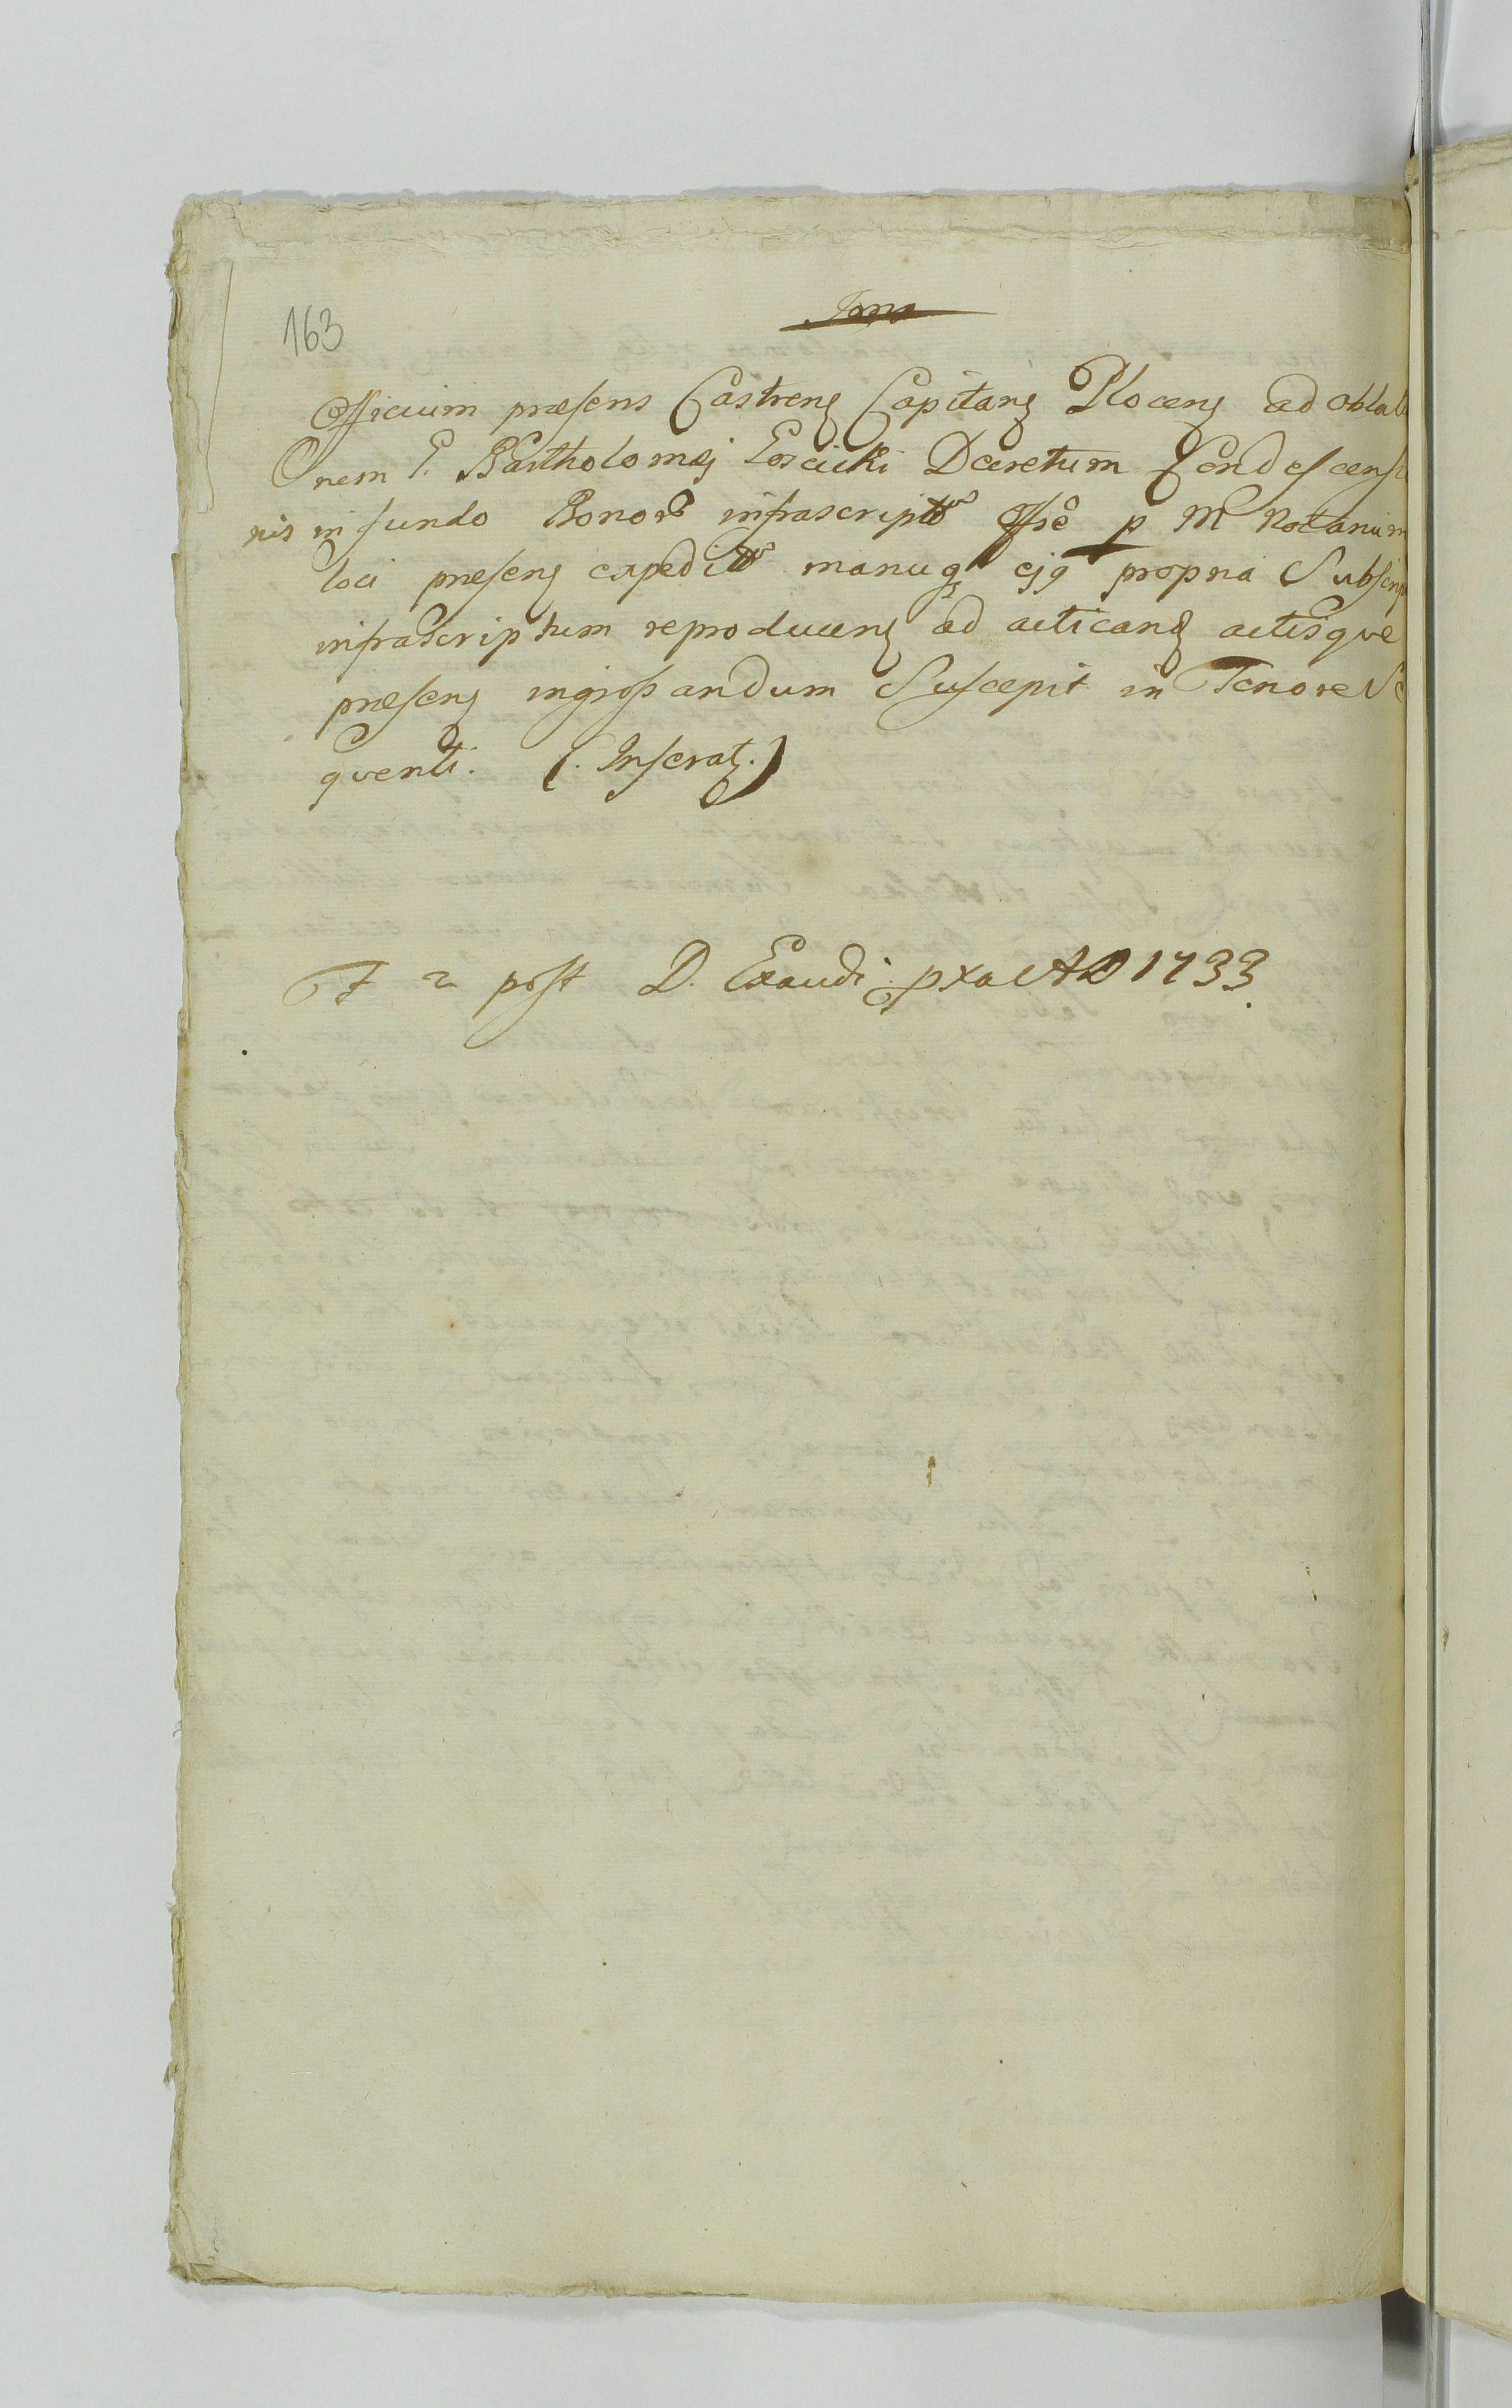 163
Officium præsens Castrens Capitans Plocens ad oblat
nem G. Bartholomæj Decretum Condescensi
nis in fundo Bonor infrascriptor Offse p M Notarium
loci præsens expeditor manuq ejq propria Subscrip
infrascriptum reproducens ad acticand actisque
præsens ingrossandum Suscepit in Tenore Se
quenti. (. Inserat.)
F 2 post D. Exaudi pxa AD 1733.